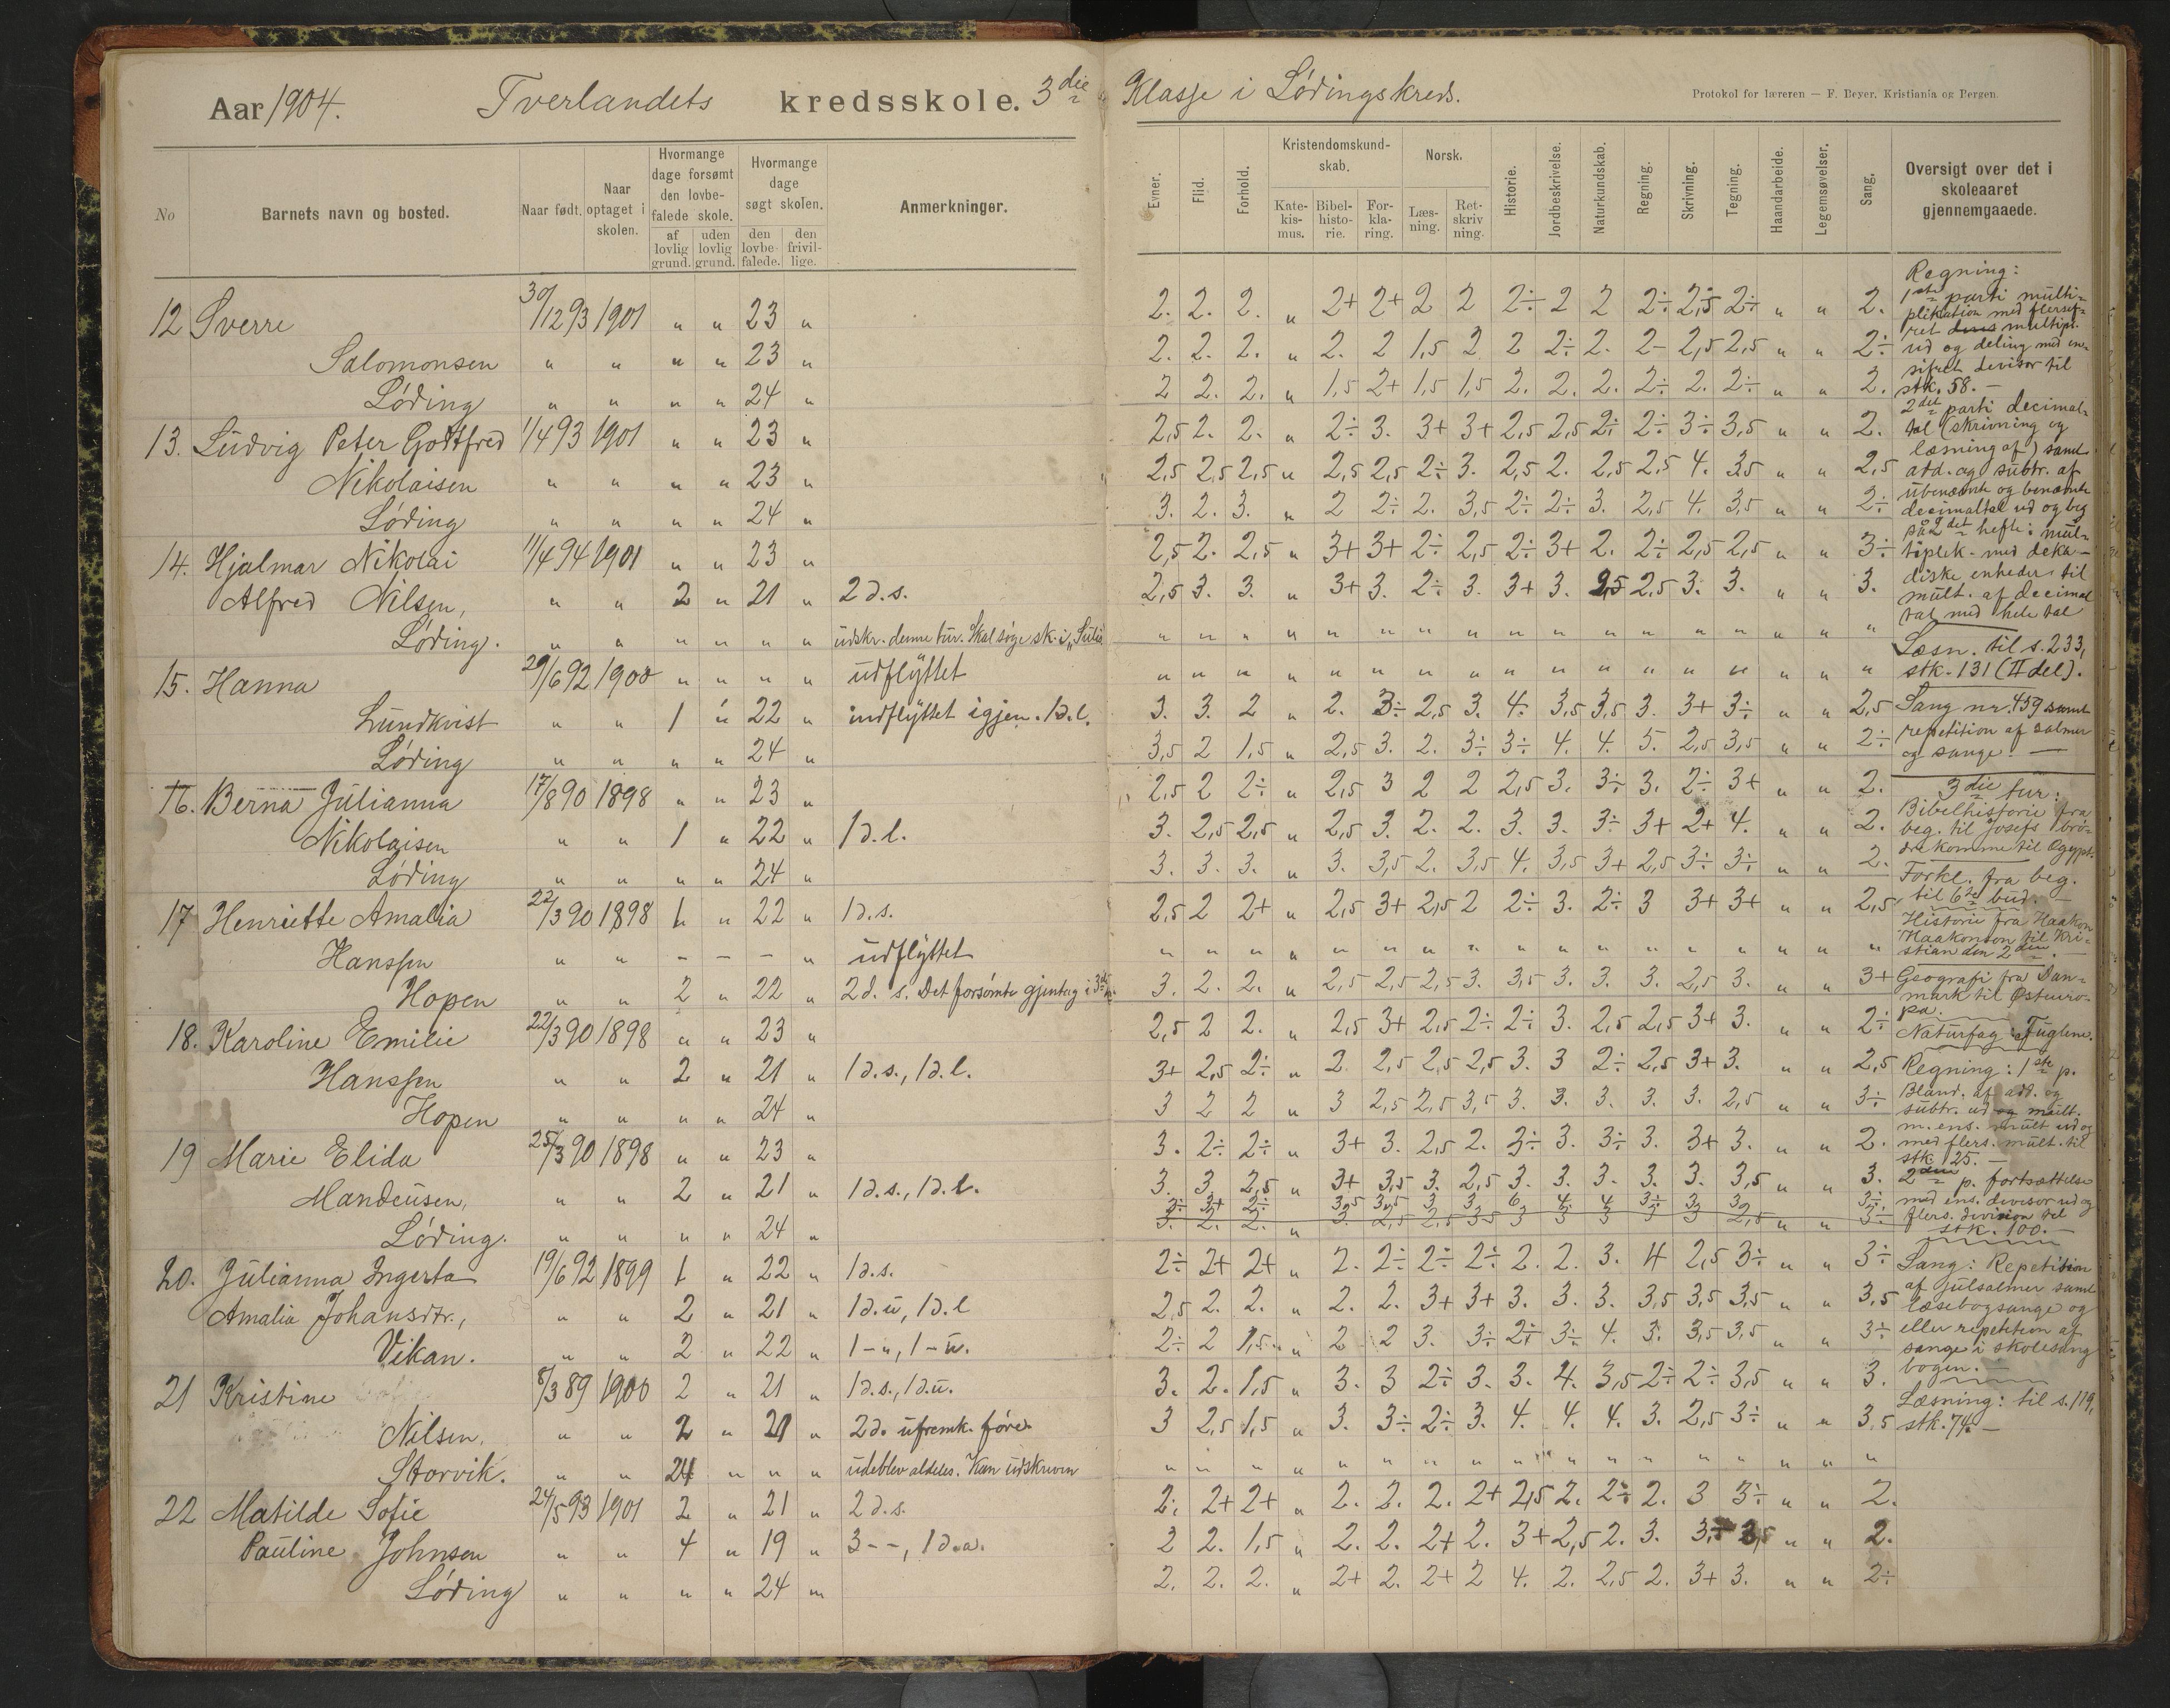 Aar 1904. Tverlandets kredsskole. 3die Klasse i Lødingskreds.
Protokol for læreren — F. Beyer, Kristiania og Bergen.
No
Barnets navn og bosted.
Naar født.
Naar optaget i skolen.
Hvormange dage forsømt den lovbefalede skole.
af lovlig grund.
uden lovlig grund.
Hvormange dage søgt skolen.
den lovbefalede.
den frivillige.
Anmerkninger.
Evner.
Flid.
Forhold.
Kristendomskundskab.
Katekismus.
Bibelhistorie.
Forklaring.
Norsk.
Læsning.
Retskrivning.
Historie.
Jordbeskrivelse.
Naturkundskab.
Regning.
Skrivning.
Tegning.
Haandarbeide.
Legemsøvelser.
Sang.
Oversigt over det i skoleaaret gjennemgaaede.
12 Sverre 30/12 93 1901 " " 23 " 2. 2. 2. " 2+ 2+ 2 2 2÷ 2 2 2÷ 2,5 2÷ " " 2.
Salomonsen " " " " 23 " 2. 2. 2. " 2. 2 1,5 2 2 2÷ 2. 2- 2,5 2,5 " " 2÷
Løding " " " " 24 " 2 2. 2. " 1,5 2+ 1,5 1,5 2. 2. 2. 2÷ 2. 2÷ " " 2.
13. Ludvig Peter Gottfred 1/4 93 1901 " " 23 " 2,5 2. 2. " 2÷ 3. 3+ 3+ 2,5 2,5 2÷ 2÷ 3÷ 3,5 " " 2.
Nikolaisen " " " " 23 " 2,5 2,5 2,5 " 2,5 2,5 2÷ 3. 2,5 2. 2,5 2,5 4. 3,5 " " 2,5
Løding " " " " 24 " 3. 2. 3. " 2 2÷ 2. 3,5 2÷ 2÷ 3. 2,5 4. 3,5 " " 2÷
14. Hjalmar Nikolai 11/4 94 1901 " " 23 " 2,5 2. 2,5 " 3+ 3+ 2÷ 2,5 2÷ 3+ 2. 2÷ 2,5 2,5 " " 3÷
Alfred Nilsen, " " 2 " 21 " 2 d.s. 2,5 3. 3. " 3+ 3. 2÷ 3. 3+ 3. 2,5 2,5 3. 3. " " 3.
Løding. " " " " " " udskr. denne tur. Skal søge sk. i " " " " " " " " " " " " " " " " "
15. Hanna 29/6 92 1900 " " " " udflyttet " " " " " " " " " " " " " " " " "
Lundkvist " " 1 " 22 " indflyttet igjen. 1d.l. 3. 3. 2 " 2. 3÷ 2,5 3. 4. 3,5 3,5 3. 3+ 3÷ " " 2,5
Løding " " " " 24 " 3,5 2 1,5 " 2,5 3. 2. 3÷ 3÷ 4. 4. 5. 2,5 3,5 " " 2÷
16. Berna Julianna 17/8 90 1898 " " 23 " 2,5 2 2÷ " 2,5 3 2 2 2,5 3. 3÷ 3. 2÷ 3+ " " 2.
Nikolaisen " " 1 " 22 " 1 d.l. 3. 2,5 2,5 " 2,5 3. 2. 2. 3. 3. 3÷ 3+ 2+ 4. " " 2.
Løding " " " " 24 " 3. 3. 3. " 3. 3,5 2. 3,5 4. 3,5 3+ 2,5 3÷ 3÷ " " 2.
17 Henriette Amalia 22/3 90 1898 1 " 22 " 1 d.s. 2,5 2 2+ " 2,5 3+ 2,5 2 2÷ 3. 2÷ 3 3+ 3+ " " 2,5
Hanssen " " - - - " udflyttet " " " " " " " " " " " " " " " " "
Hopen " " 2 " 22 " 2 d. s. Det forsømte gjentag i 3. 2. 2. " 2,5 2,5 2,5 3. 3,5 3. 3. 3. 2,5 3. " " 3+
18. Karoline Emilie 22/3 90 1898 " " 23 " 2,5 2 2. " 2,5 3+ 2,5 2÷ 2÷ 3. 2,5 2,5 3+ 3. " " 2÷
Hanssen " " 2 " 21 " 1 d.s., 1 d.l. 3+ 2,5 2÷ " 2 2,5 2,5 2,5 3. 3 2÷ 2,5 3+ 3. " " 2,5
Hopen " " " " 24 " 3 2 2 " 3 2,5 2,5 3,5 3. 3. 3. 3. 3. 2,5 " " 3÷
19 Marie Elida 25/3 90 1898 " " 23 " 3. 2÷ 2÷ " 3+ 3. 2,5 2. 3÷ 3. 3÷ 3. 3+ 3. " " 2.
Mandeusen, " " 2 " 21 " 1 d.s., 1 d.l. 3. 3. 2,5 " 3+ 3,5 3. 2,5 3. 3. 3. 3. 3. 3,5 " " 3.
3÷ 3+ 2÷ 3,5 3,5 3 3, 6. 4. 4 3÷ 3 3, 3÷
Løding. " " " " 24 " 3. 2. 2. " 3. 2,5 2,5 3,5 3 3 3 3 3 2,5 " " 3÷
20. Julianna Ingerta 19/6 92 1899 1 " 22 " 1 d.s. 2÷ 2+ 2+ " 2. 2÷ 2÷ 2÷ 2. 2. 3. 4 2,5 3÷ " " 3÷
Amalia Johansdtr., " " 2 " 21 " 1 d.u, 1 d.l 2,5 2. 2. " 2. 2. 3+ 3+ 3. 3. 3. 3,5 3,5 3,5 " " 3,5
Vikan. " " 2 " 22 " 1 - u, 1 - u. 2÷ 2 1,5 " 2 2 3. 3÷ 2÷ 3÷ 4. 3. 3,5 3,5 " " 3÷
21 Kristine 8/3 89 1900 2 " 21 " 1 d.s., 1 d.u. 3. 2. 1,5 " 3. 3 2÷ 3. 3. 4. 3,5 2÷ 2÷ 3,5 " " 3.
Nilsen. " " 2 " 21 " 2 d. ufremk. føre. 3 2,5 1,5 " 3. 3÷ 2÷ 3. 4. 4. 4. 3. 2,5 3÷ " " 3,5
Storvik. " " 24 " " " udeblev aldeles. Kan udskriven " " " " " " " " " " " " " " " " "
22 Matilde Sofie 24/5 93 1901 2 " 21 " 2 d.s. 2. 2+ 2+ " 2. 2. 2. 2+ 2,5 2. 2÷ 2. 3 3÷ " " 2.
Pauline Johnsen " " 4 " 19 " 3 - -, 1 d.a. 2 2. 1,5 " 2. 2. 2+ 2. 3+ 2,5 2. 3. 3÷ 3,5 " " 2.
Løding " " " " 24 " 2. 2. 2. " 2+ 2. 2+ 2 4. 2. 2,5 2. 3+ 3. " " 2÷
Regning:
1ste parti multi-
plikation med flersif-
ret multipl.
ud og deling med en-
sifret devisor til
stk. 58. —
2det parti decimal-
tal (skrivning og
læsning af) samt
add. og subtr. af
ubenævnte og benævnte
decimaltal ud og beg
på 2det hefte: mul-
tiplik. med deka-
diske enheder til
mult. af decimal
tal med hele tal
Læsn. til s. 233,
stk. 131 (II del).
Sang nr. 459 samt
repetition af salmer
og sange. —
3die tur:
Bibelhistorie fra
beg. til Josefs brø-
dre komme til Ægypt.
Forkl. fra beg.
til 6te bud. —
Historie fra Haakon
Haakonson til Kri-
stian den 2den. —
Geografi fra Dan-
mark til Østeuro-
pa.
Naturfag: Fuglene.
Regning: 1ste p.
Bland. af add. og
subtr. ud og mult.
m. ens. mult ud og
med flers. mult. til
stk. 25. —
2den p. fortsættelse
med ens. divisor ud og
flers. division til
stk. 100. —
Sang: Repetition
af julsalmer samt
læsebogsange og
eller repetition af
sange i skolesang
bogen. —
Læsning: til s. 119,
stk. 74. —